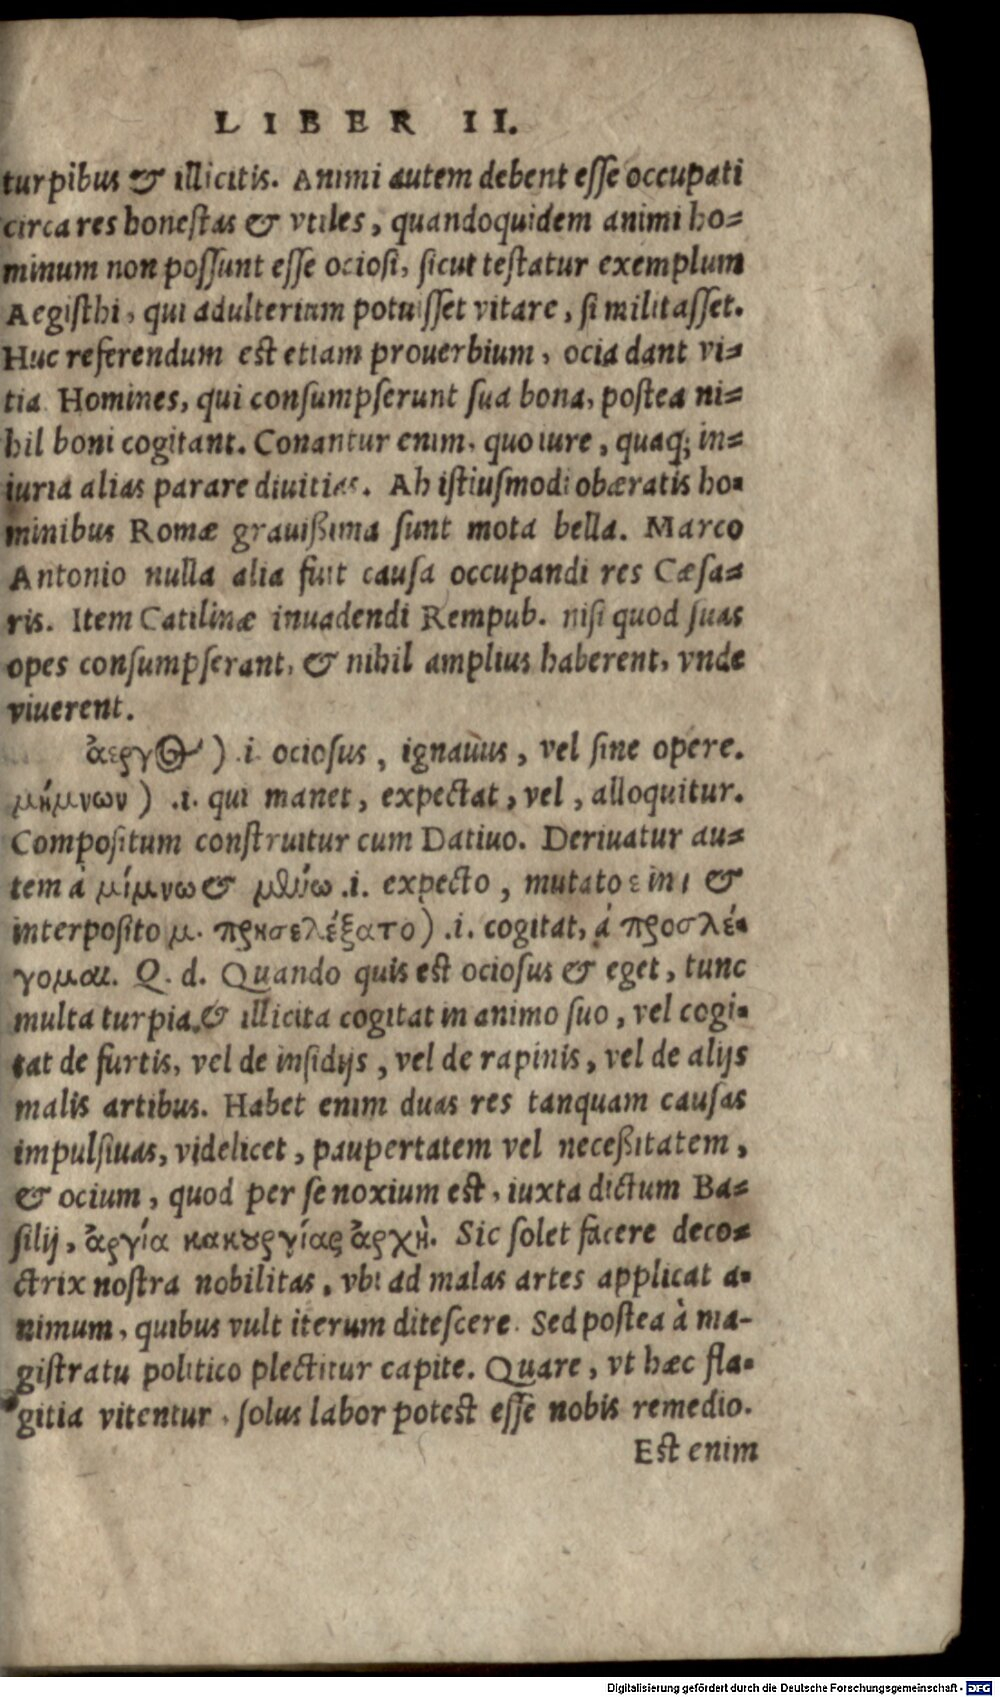 LIBER II.
turpibus & illicitis. Animi autem debent esse occupati
circa res honestas & vtiles, quandoquidem animi ho=
minum non possunt esse ociosi, sicut testatur exemplum
Aegisthi, qui adulterium potuisset vitare, si militasset.
Huc referendum est etiam prouerbium, ocia dant vi=
tia. Homines, qui consumpserunt sua bona, postea ni=
hil boni cogitant. Conantur enim, quo iure, quaq; in=
iuria alias parare diuitias. Ab istiusmodi obæratis ho=
minibus Romæ grauißima sunt mota bella. Marco
Antonio nulla alia fuit causa occupandi res Cæsa=
ris. Item Catilinæ inuadendi Rempub. nisi quod suas
opes consumpserant, & nihil amplius haberent, vnde
viuerent.
ἀεργὸς) .i. ociosus, ignauus, vel sine opere.
μήμνων) .i. qui manet, expectat, vel, alloquitur.
Compositum construitur cum Datiuo. Deriuatur au=
tem à μίμνω & μθύω .i. expecto, mutato ε in ι &
interposito μ. προσελέξατο) .i. cogitat, à προσλέ=
γομαι. Q. d. Quando quis est ociosus & eget, tunc
multa turpia & illicita cogitat in animo suo, vel cogi=
tat de furtis, vel de insidijs, vel de rapinis, vel de alijs
malis artibus. Habet enim duas res tanquam causas
impulsiuas, videlicet, paupertatem vel neceßitatem,
& ocium, quod per se noxium est, iuxta dictum Ba=
silij, ἀργία κακουργίας ἀρχὴ. Sic solet facere deco=
ctrix nostra nobilitas, vbi ad malas artes applicat a=
nimum, quibus vult iterum ditescere. Sed postea à ma-
gistratu politico plectitur capite. Quare, vt hæc fla=
gitia vitentur, solus labor potest esse nobis remedio.
Est enim
Digitalisierung gefördert durch die Deutsche Forschungsgemeinschaft - DFG